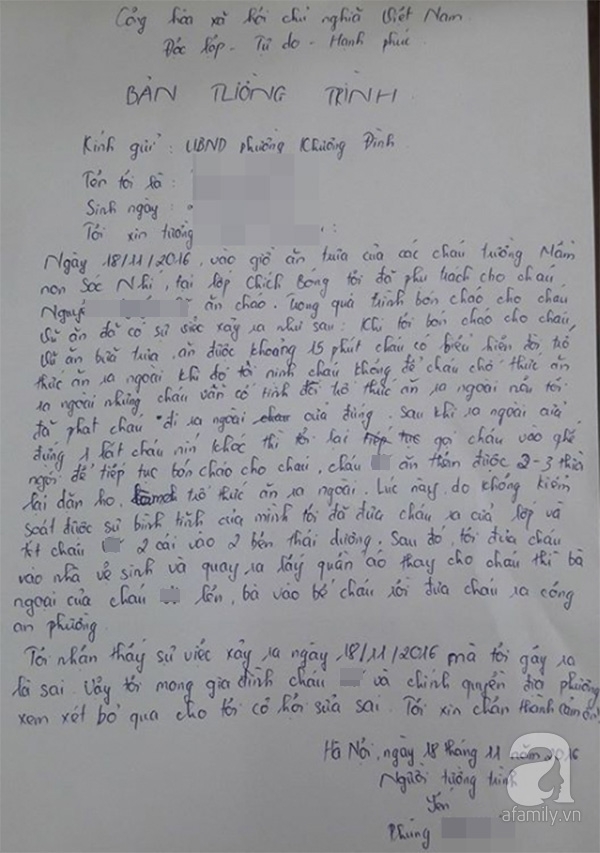 Cộng hòa xã hội chủ nghĩa Việt Nam
Độc lập - Tự do - Hạnh phúc
BẢN TƯỜNG TRÌNH
Kính gửi : UBND phường Khương Đình
Tên tôi là :
Sinh ngày :
Tôi xin tường :
Ngày 18/11/2016, vào giờ ăn trưa của các cháu trường Mầm
non Sóc Nhí, tại lớp Chích Bông tôi đã phụ trách cho cháu
Nguyễ ăn cháo. Trong quá trình bón cháo cho cháu
ăn đã có sự việc xảy ra như sau: Khi tôi bón cháo cho cháu
ăn bữa trưa, ăn được khoảng 15 phút cháu có biểu hiện đòi trớ
thức ăn ra ngoài khi đó tôi nịnh cháu không để cháu chớ thức ăn
ra ngoài nhưng cháu vẫn cố tình đòi trớ thức ăn ra ngoài nên tôi
đã phạt cháu đi ra ngoài cửa đứng. Sau khi ra ngoài cửa
đứng 1 lát cháu nín khóc thì tôi lại tiếp tục gọi cháu vào ghế
ngồi để tiếp tục bón cháo cho cháu, cháu ăn thêm được 2-3 thìa
lại dặn ho, trớ thức ăn ra ngoài. Lúc này, do không kiểm
soát được sự bình tĩnh của mình tôi đã đưa cháu ra cửa lớp và
tát cháu 2 cái vào 2 bên thái dương. Sau đó, tôi đưa cháu
vào nhà vệ sinh và quay ra lấy quần áo thay cho cháu thì bà
ngoại của cháu lên, bà vào bế cháu rồi đưa cháu ra công
an phường.
Tôi nhận thấy sự việc xảy ra ngày 18/11/2016 mà tôi gây ra
là sai. Vậy tôi mong gia đình cháu và chính quyền địa phương
xem xét bỏ qua cho tôi cơ hội sửa sai. Tôi xin chân thành cảm ơn!
Hà Nội, ngày 18 tháng 11 năm 2016
Người tường trình
Yến
Phùng
a
afamily.vn